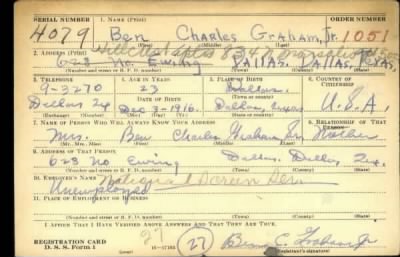 SERIAL NUMBER 1. NAME (Print) ORDER NUMBER
4079 Ben Charles Graham, Jr. 1051
(First) (Middle) (Last)
2. ADDRESS (Print)
623 No. Ewing Dallas, Dallas, Texas
(Number and street or R. F. D. number) (Town) (County) (State)
3. TELEPHONE 4. AGE IN YEARS 5. PLACE OF BIRTH 6. COUNTRY OF CITIZENSHIP
9-3270 23 Dallas
DATE OF BIRTH (Town or county)
Dallas Dec 3-1916. Dallas, Texas U.S.A.
(Exchange) (Number) (Mo.) (Day) (Yr.) (State or country)
7. NAME OF PERSON WHO WILL ALWAYS KNOW YOUR ADDRESS 8. RELATIONSHIP OF THAT PERSON
Mrs. Ben Charles Graham Sr. Mother
(Mr., Mrs., Miss) (First) (Middle) (Last)
9. ADDRESS OF THAT PERSON
623 No Ewing Dallas, Dallas Tex.
(Number and street or R. F. D. number) (Town) (County) (State)
10. EMPLOYER'S NAME National Screen
Unemployed
11. PLACE OF EMPLOYMENT OR BUSINESS
(Number and street or R. F. D. number) (Town) (County) (State)
I AFFIRM THAT I HAVE VERIFIED ABOVE ANSWERS AND THAT THEY ARE TRUE.
REGISTRATION CARD 27 27 Ben C. Graham Jr
D. S. S. Form 1 (Registrant's signature)